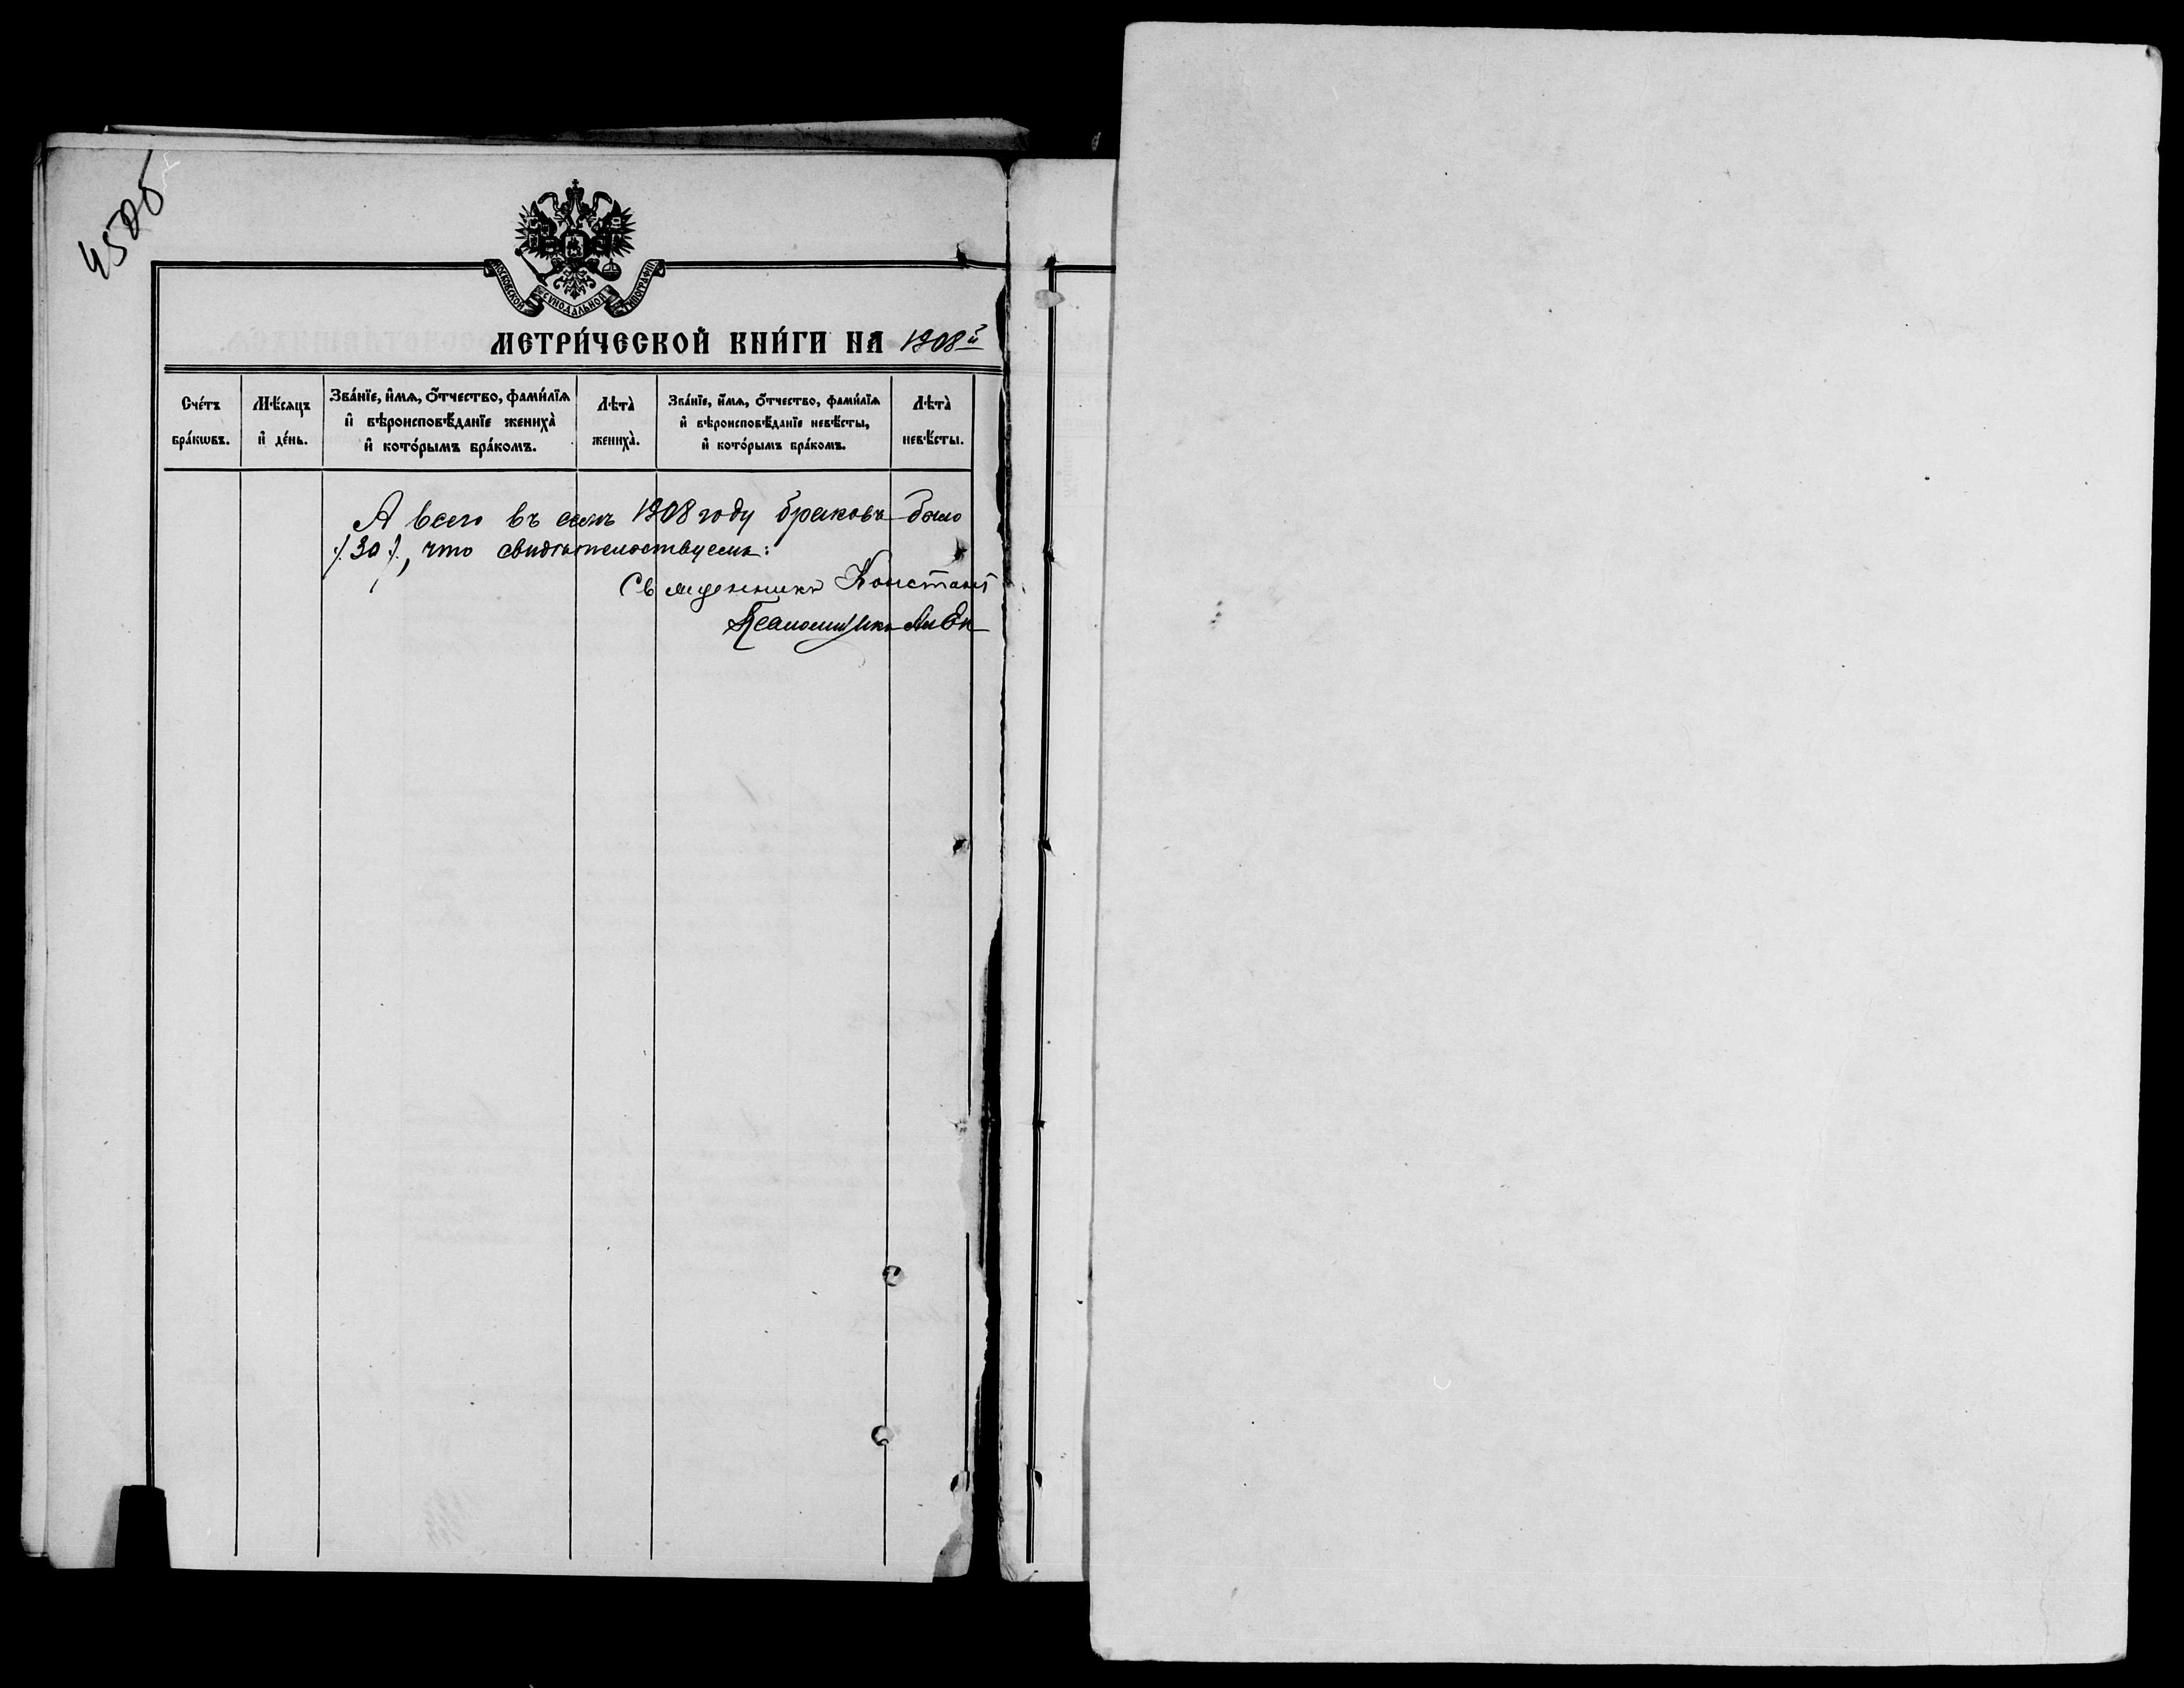 450об
МОСКОВСКОЙ СѴНОДАЛЬНОЙ ТИПОГРАФІИ
МЕТРИ́ЧЕСКОЙ КНИ́ГИ НА 1908й
Сче́тъ бра́кѡвъ.
Мѣ́сяцъ и҆ де́нь.
Зва́нїе, и҆́мѧ, ѻ҆́тчество, фамилїѧ
и҆ вѣроисповѣ́данїе жениха̀
и҆ кото́рымъ бра́комъ.
Лѣта̀ жениха̀.
Зва́нїе, и҆́мѧ, ѻ҆́тчество, фамилїѧ
и҆ вѣроисповѣ́данїе невѣ́сты,
и҆ кото́рымъ бра́комъ.
Лѣта̀ невѣ́сты.
А всего въ семъ 1908 году браковъ было
/30/, что свидѣтельствуемъ:
Священникъ Констант
Псаломщикъ